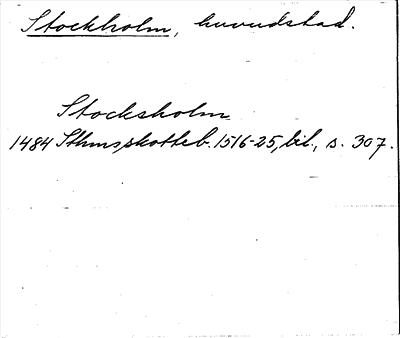 Stockholm, huvudstad.
Stocksholm
1484 Sthmsskotteb. 1516-25, bil., s. 307.